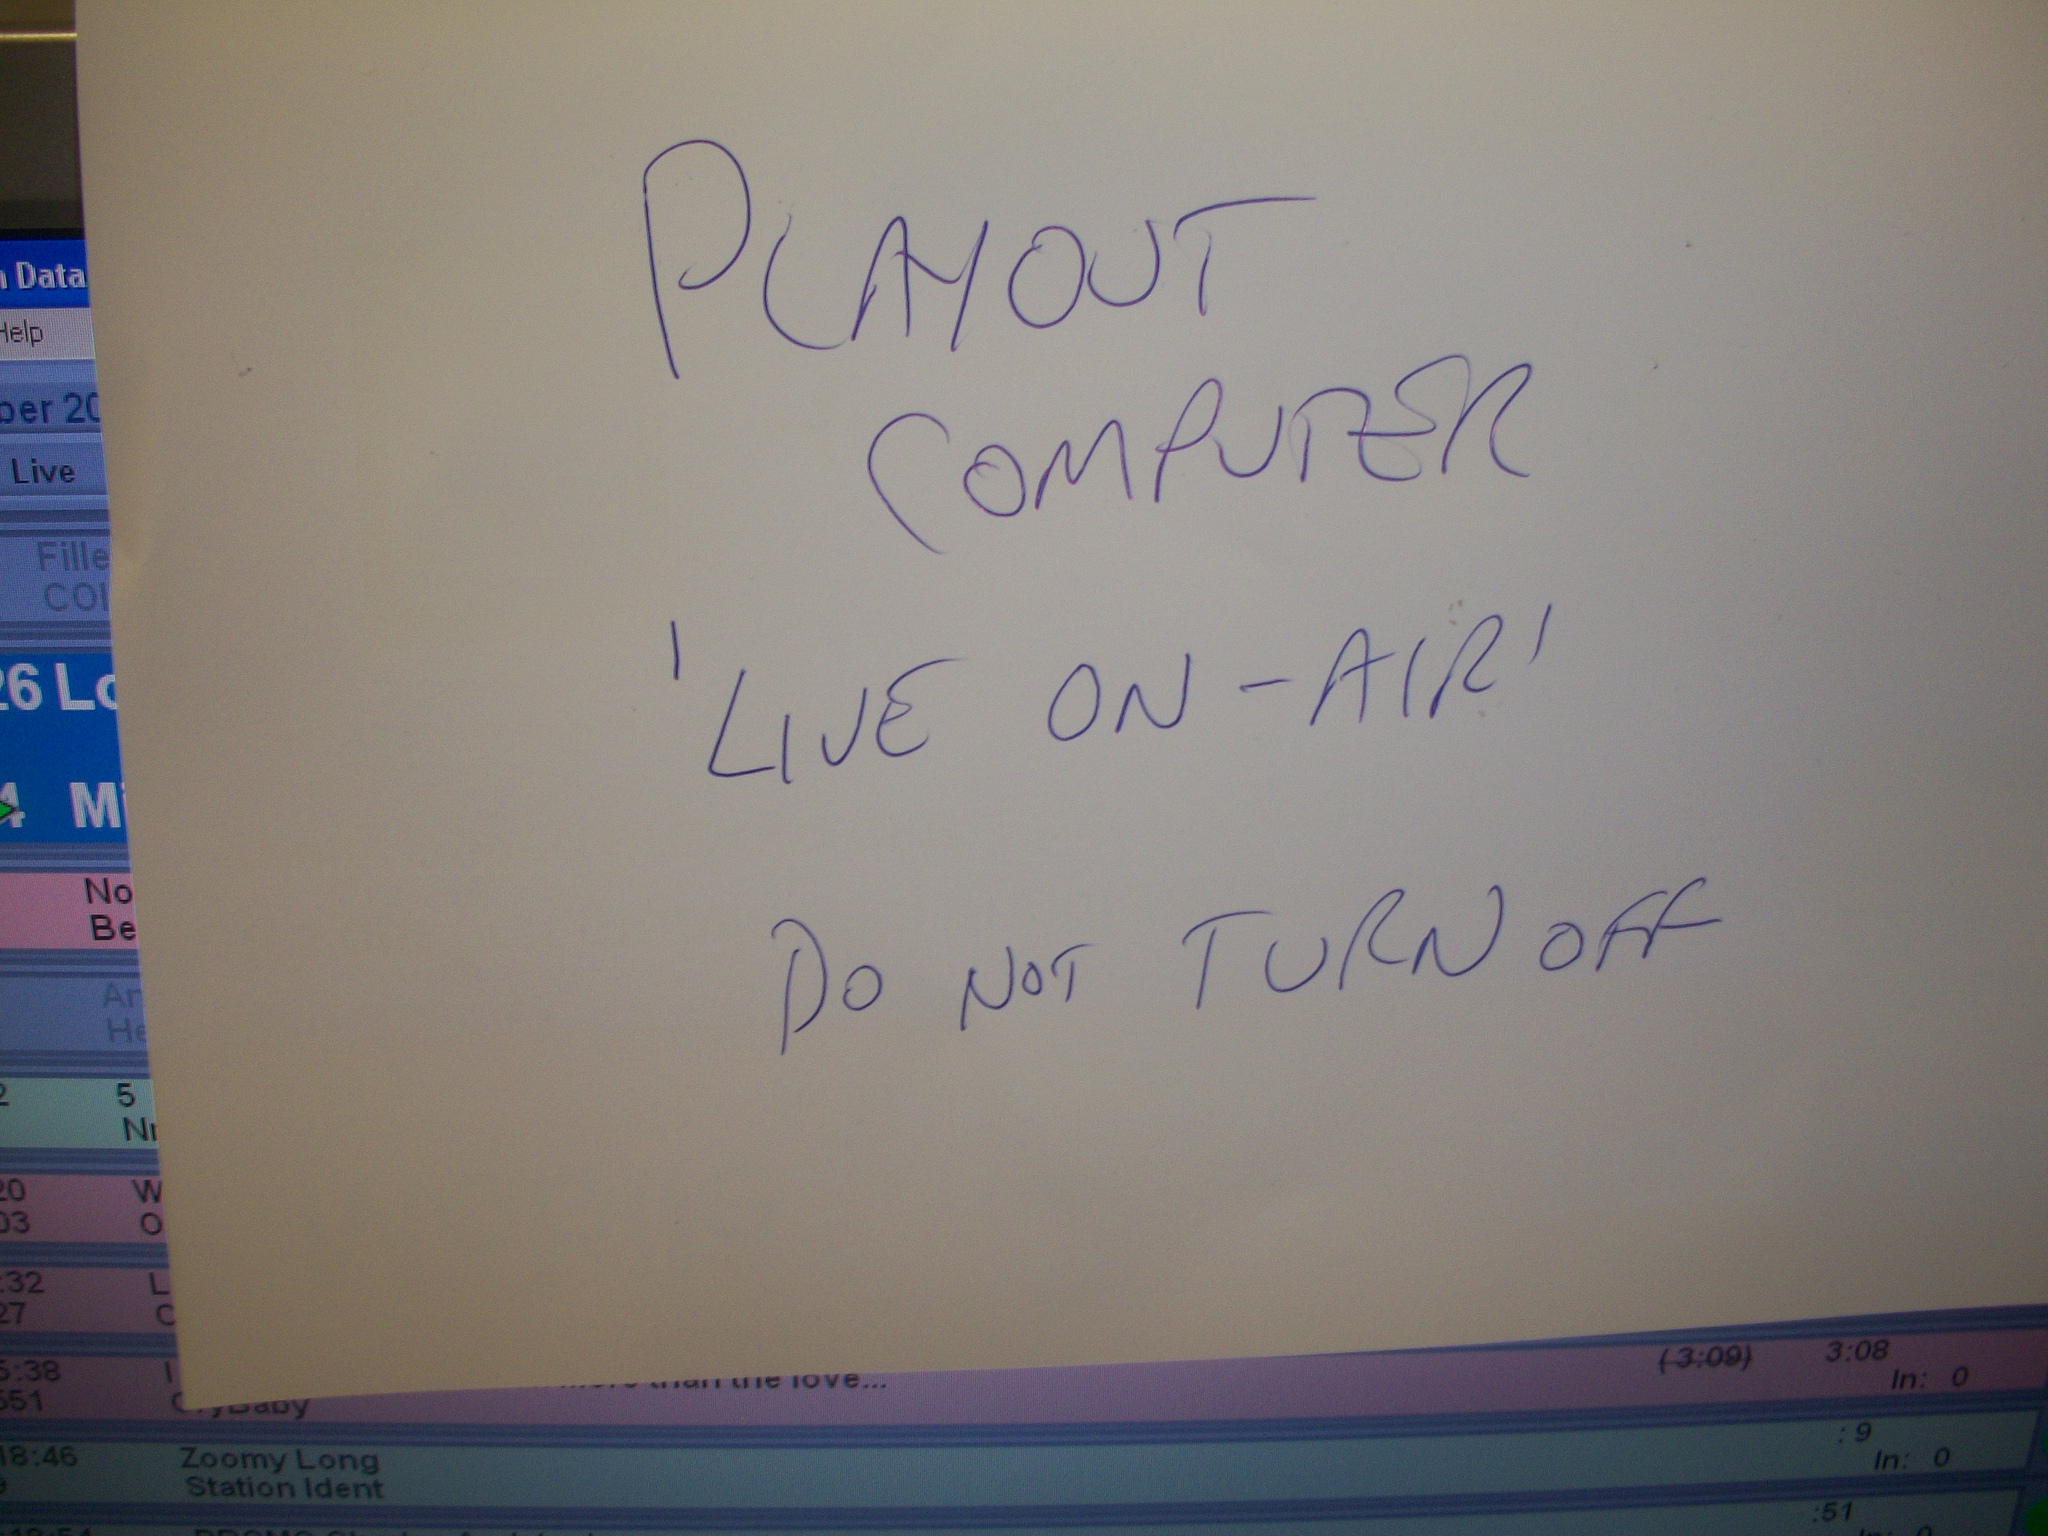 PLAYOUT
COMPUTER
'LIVE ON-AIR'
DO NOT TURN OFF
Data
Help
20
Live
26
No
Be
5
20
03
:32
27
5:38
than the love... (3:09) 3:08
551 CryBaby In: 0
18:46 Zoomy Long :9
Station Ident In: 0
:51